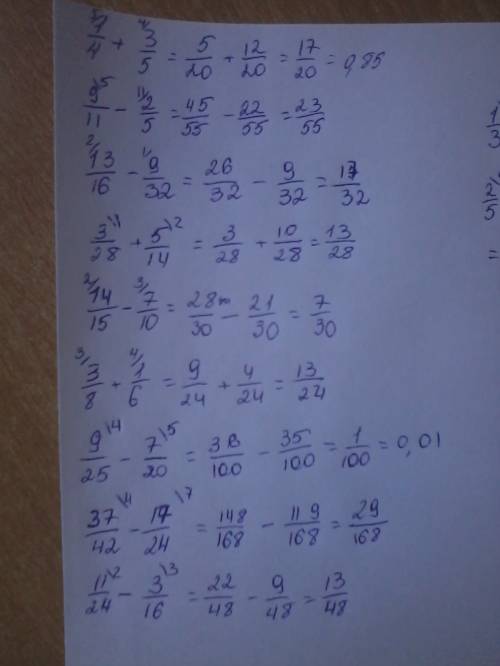 5/ 1/4 + 4/ 3/5 = 5/20 + 12/20 = 17/20 = 0,85
9\5/11 - 11\ 2/5 = 45/55 - 22/55 = 23/55
2/ 13/16 - 1/ 9/32 = 26/32 - 9/32 = 17/32
3\1/28 + 5\2/14 = 3/28 + 10/28 = 13/28
2/ 14/15 - 3/ 7/10 = 28/30 - 21/30 = 7/30
3/ 3/8 + 4/ 1/6 = 9/24 + 4/24 = 13/24
9\4/25 - 7\5/20 = 36/100 - 35/100 = 1/100 = 0,01
37\4/42 - 17\7/24 = 148/168 - 119/168 = 29/168
11\2/24 - 3\3/16 = 22/48 - 9/48 = 13/48
1/3
2/5
=